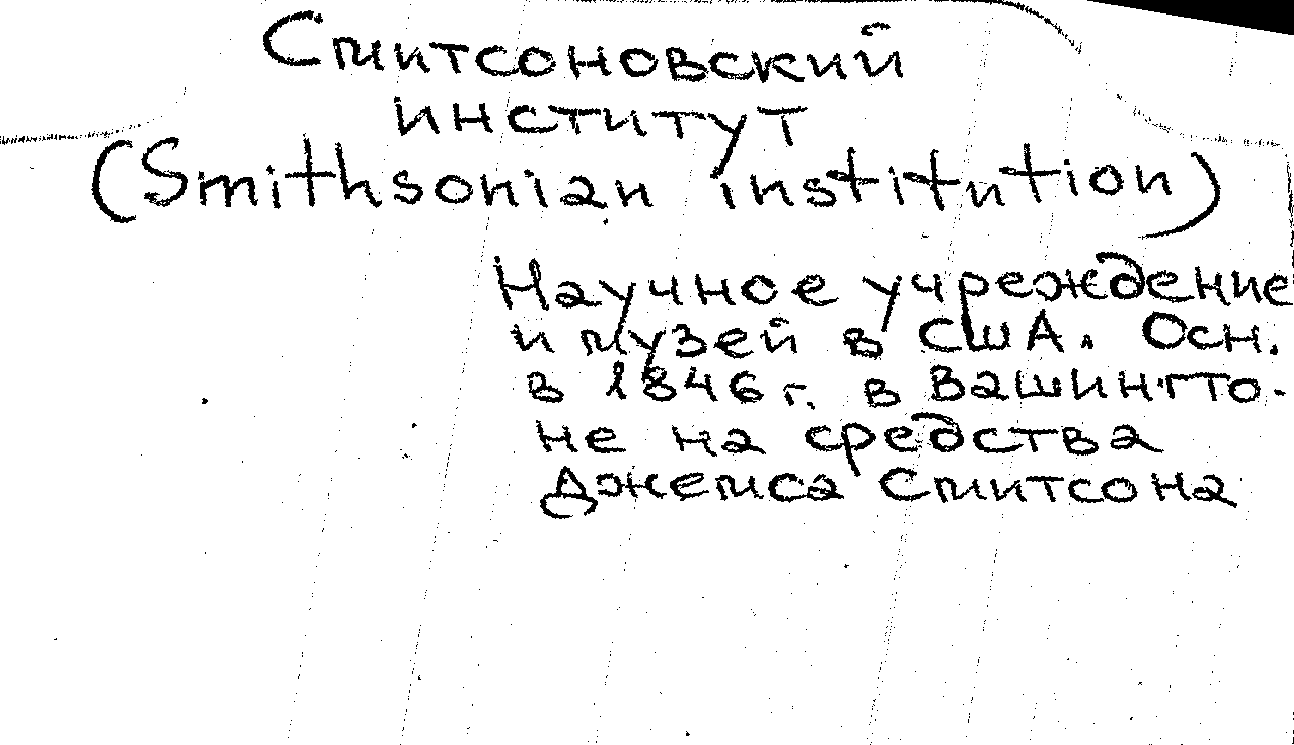 Смитсоновский
институт
(Smithsonian institution)
Научное учреждение
и музей в США. Осн.
в 1846 г. в Вашингто-
не на средства
Джемса Смитсона